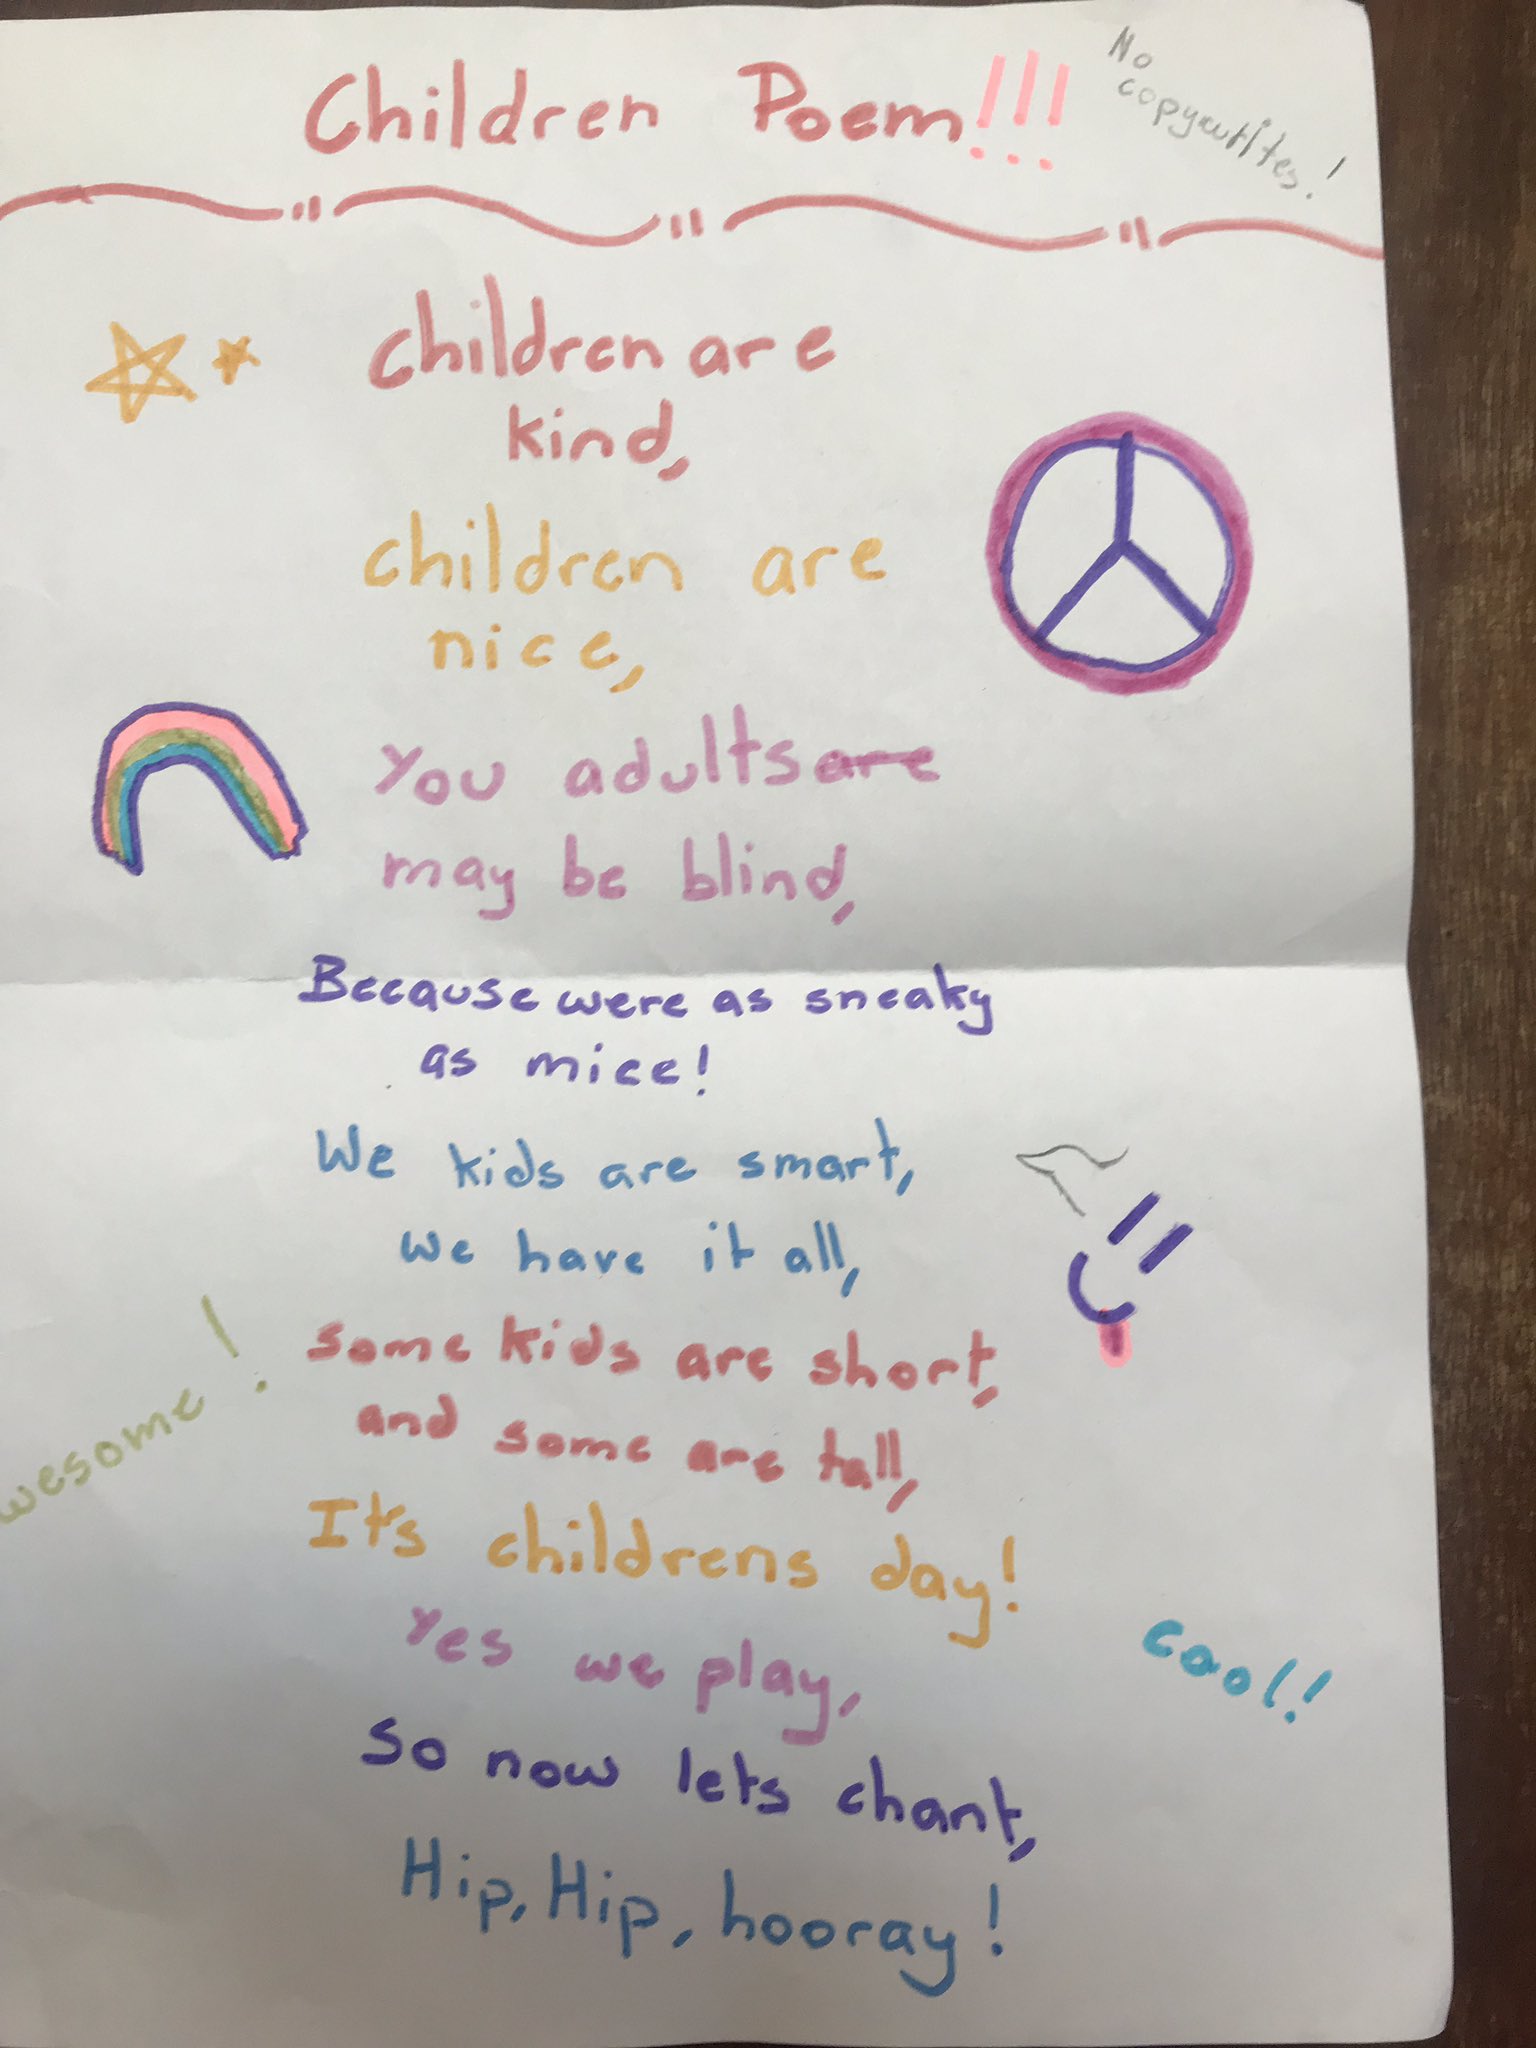 Children Poem!!!
No
copywrites!
children are
kind,
children are
nice,
You adults are
may be blind,
Because were as sneaky
as mice!
We kids are smart,
we have it all,
some kids are short,
and some are tall,
wesome!
It's childrens day!
Yes we play,
cool!
So now lets chant,
Hip, Hip, hooray!